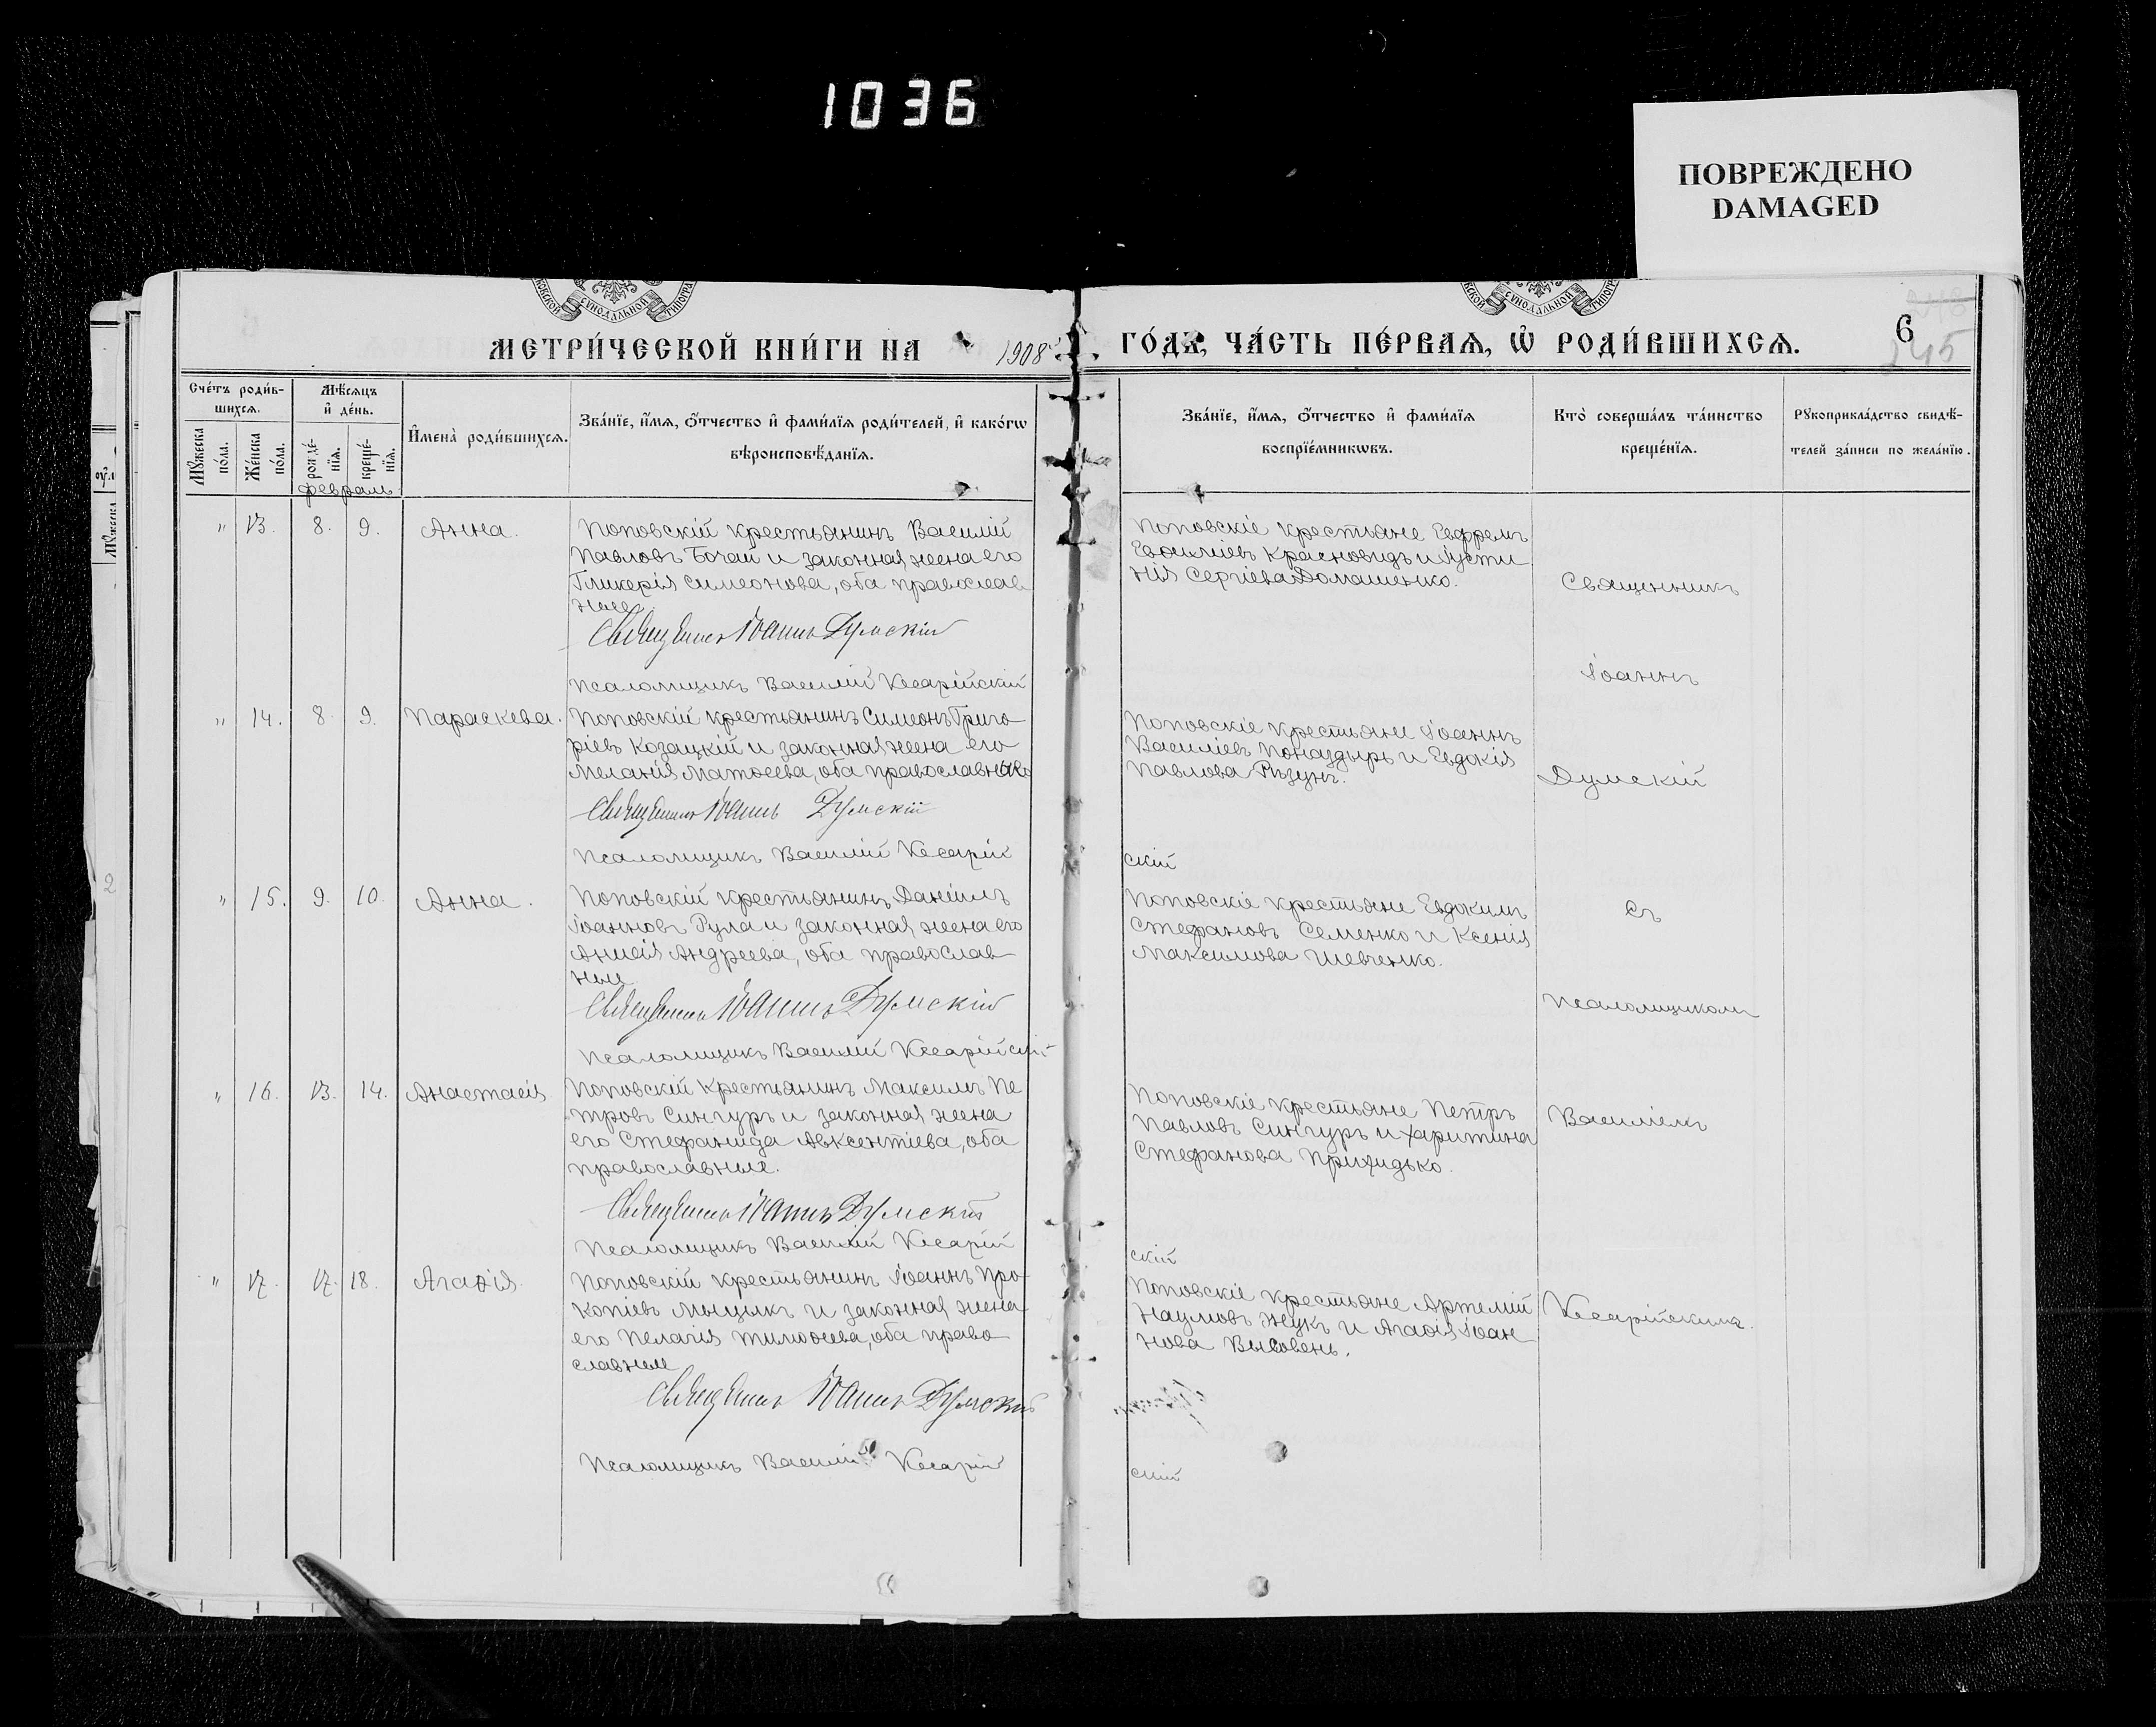 1036
ПОВРЕЖДЕНО
DAMAGED
МЕТРИ́ЧЕСКОЙ КНИ́ГИ НА 1908 ГО́ДЪ, ЧА́СТЬ ПЕ́РВАѦ, Ѡ҆ РОДИ́ВШИХСѦ.
6
Сче́тъ роди́в-
шихсѧ.
Мꙋ́жеска по́ла.
Же́нска по́ла.
Мѣ́сѧцъ
и҆ де́нь.
рожде́-
нїѧ.
креще́-
нїѧ.
февраль
И҆мена̀ роди́вшихсѧ.
Зва́нїе, и҆́мѧ, ѻ҆́тчество и҆ фами́лїѧ роди́телей, и҆ како́гѡ
вѣроисповѣ́данїѧ.
Зва́нїе, и҆́мѧ, ѻ҆́тчество и҆ фами́лїѧ
воспрїе́мникѡвъ.
Кто̀ соверша́лъ та́инство
креще́нїѧ.
Рꙋкоприкла́дство свидѣ́-
телей за́писи по жела́нїю.
" 13. 8. 9. Анна.
Поповскій крестьянинъ Василій
Павловъ Бочай и законная жена его
Гликерія Симеонова, оба православ
ные
Священникъ Іоаннъ Думскій
Псаломщикъ Василій Кесарійскій
Поповскіе крестьяне Ефремъ
Красновидъ и Іусти
нія Сергіева Домашенко.
" 14. 8. 9. Параскева.
Поповскій крестьянинъ Симеонъ Григо-
ріевъ Козацкій и законная жена его
Меланія Матѳеева, оба православные
Священникъ Іоаннъ Думскій
Псаломщикъ Василій Кесарій
скій
Поповскіе крестьяне Іоаннъ
Василіевъ Поназдырь и Евдокія
Павлова Рѣзунъ.
" 15. 9. 10. Анна.
Поповскій крестьянинъ Даніилъ
Іоанновъ Рула и законная жена его
Анисія Андреева, оба православ-
ные
Священникъ Іоаннъ Думскій
Псаломщикъ Василій Кесарійскій
Поповскіе крестьяне Евдокимъ
Стефановъ Семенко и Ксенія
Максимова Шевченко.
" 16. 13. 14. Анастасія
Поповскій крестьянинъ Максимъ Пе
тровъ Сингуръ и законная жена
его Стефанида Авксентіева, оба
православные.
Священникъ Іоаннъ Думскій
Псаломщикъ Василій Кесарій
скій
Поповскіе крестьяне Петръ
Павловъ Сингуръ и Харитина
Стефанова Прихидько.
" 17. 17. 18. Агаѳія.
Поповскій крестьянинъ Іоаннъ Про-
копіевъ Мыцыкъ и законная жена
его Пелагія Тимоѳеева, оба право-
славные
Священникъ Іоаннъ Думскій
Псаломщикъ Василій Кесарій
скій
Поповскіе крестьяне Артемій
Наумовъ Жукъ и Агаѳія Іоан
нова Высовень.
Священникъ
Іоаннъ
Думскій
съ
псаломщикомъ
Василіемъ
Кесарійскимъ.
2